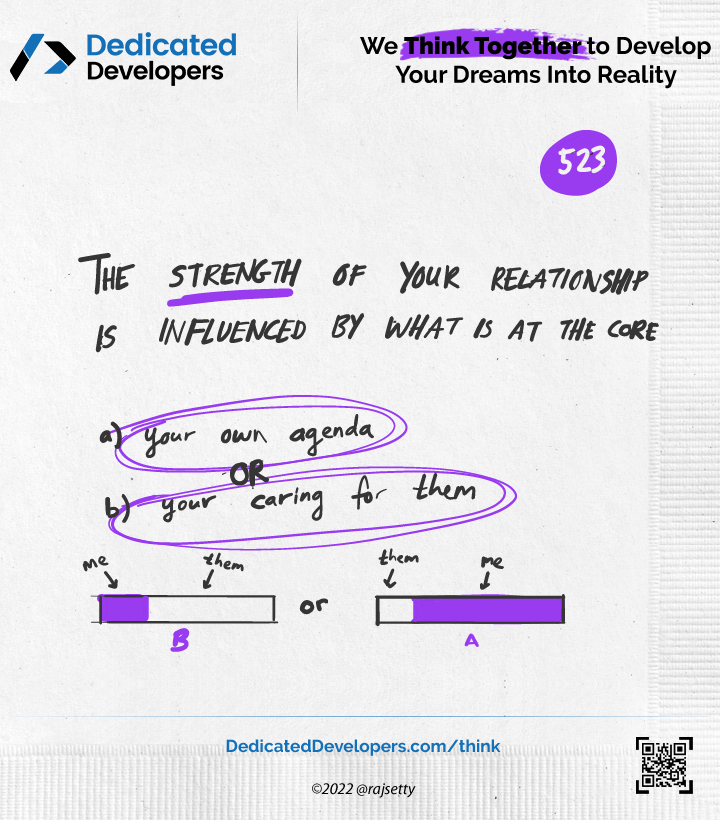 Dedicated
Developers
We Think Together to Develop
Your Dreams Into Reality
523
THE STRENGTH OF YOUR RELATIONSHIP
IS INFLUENCED BY WHAT IS AT THE CORE
a) your own agenda
OR
b) your caring for them
me them
them me
or
B
A
DedicatedDevelopers.com/think
©2022 @rajsetty